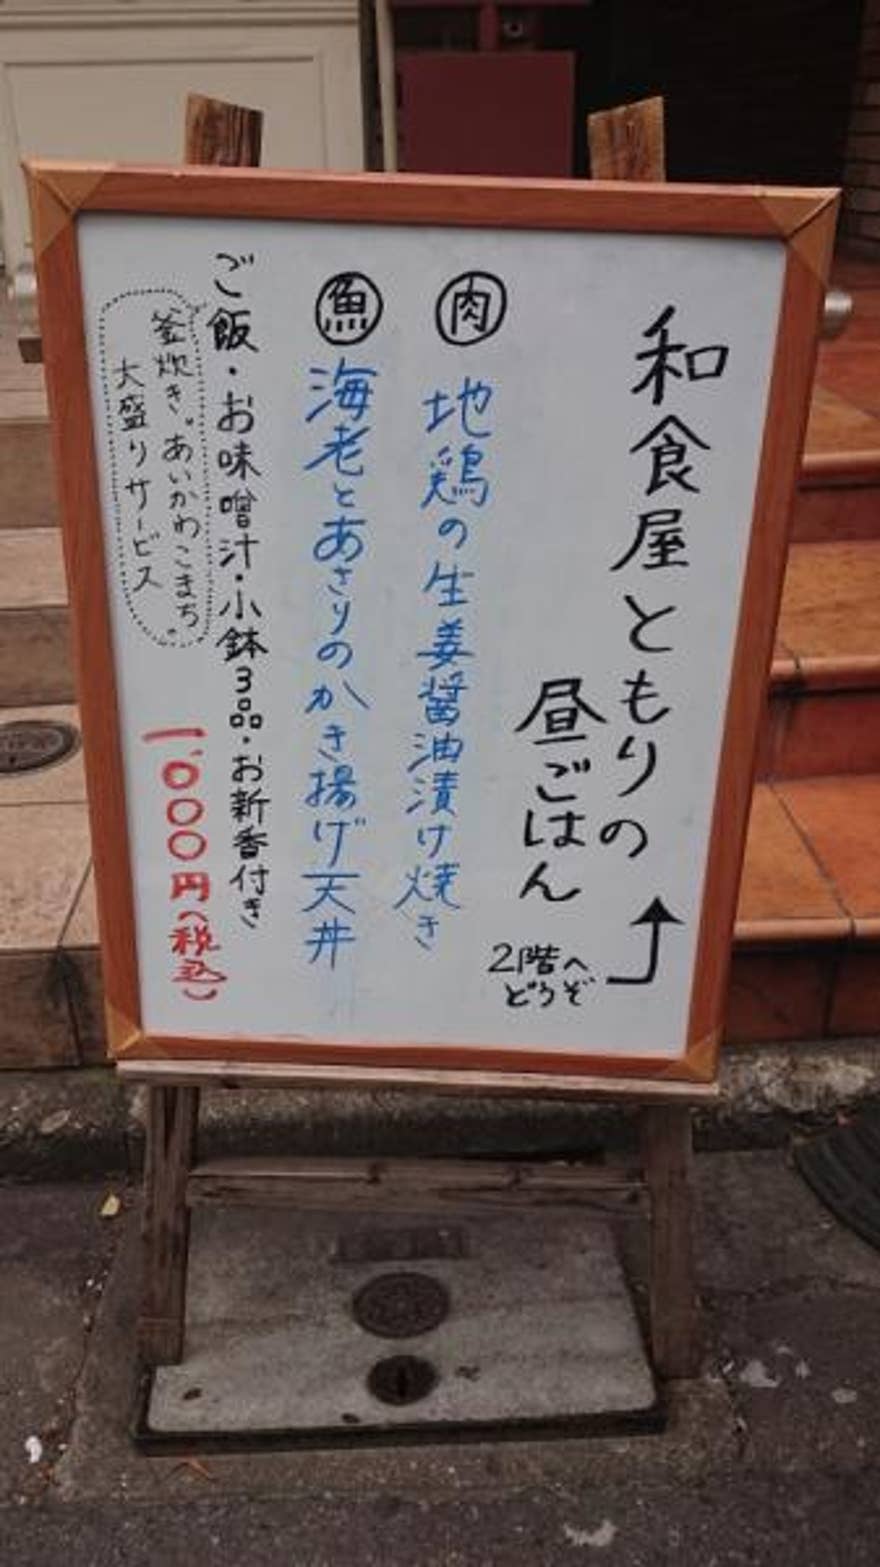 和食屋ともりの
昼ごはん
2階へ
どうぞ
肉 地鶏の生姜醤油漬け焼き
魚 海老とあさりのかき揚げ天丼
ご飯・お味噌汁・小鉢3品・お新香付き
釜炊き。あいかわこまち。
大盛りサービス
1,000円(税込)